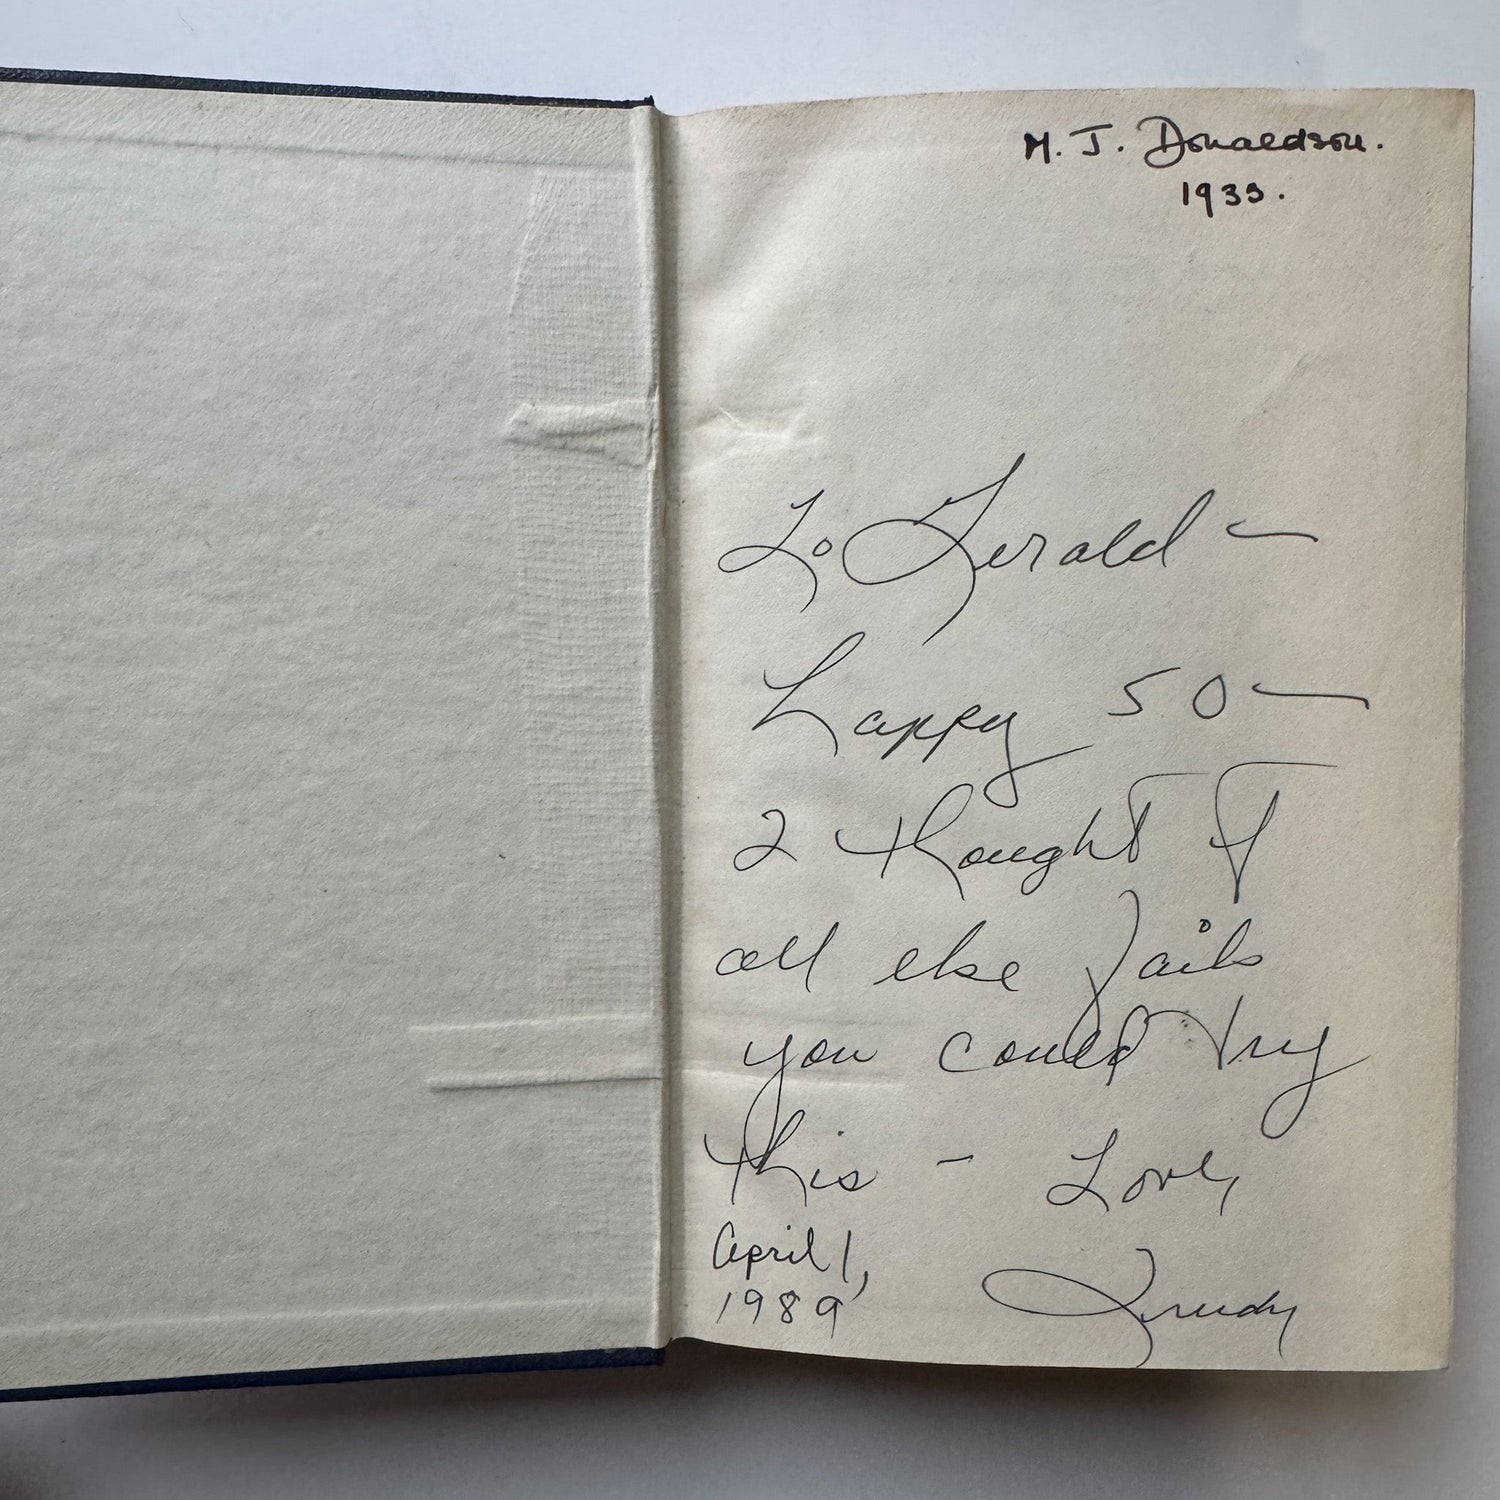 M. J. Donaldson.
1933.
To Gerald —
Happy 50 —
I thought if
all else fails
you could try
this — Love,
April 1,
1989
Trudy